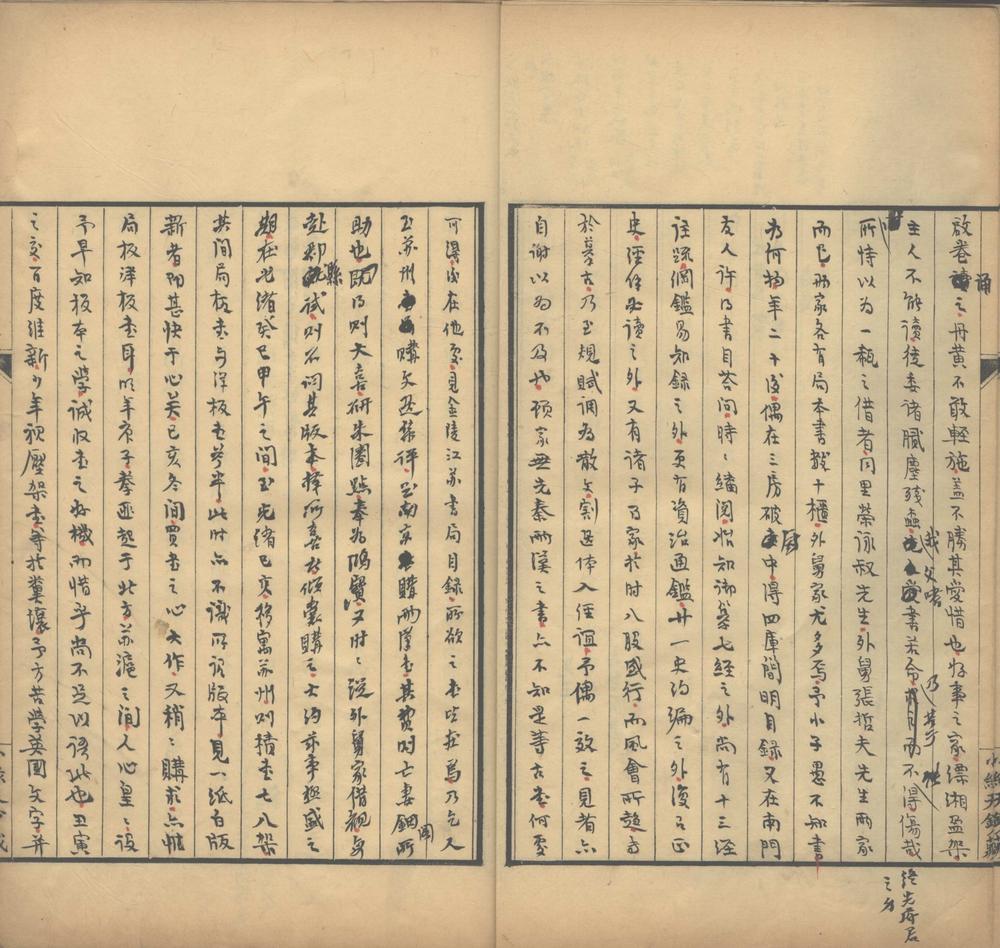 啟卷誦之丹黃不敢輕施蓋不勝其愛惜也好事之家縹湘盈架
主人不能讀徒委諸膩塵殘蠹
愛書若命
不得傷哉
所恃以為一瓻之借者同里榮詠叔先生外舅張哲夫先生兩家
而已兩家各有局本書數十櫃外舅家尤多焉予小子愚不知書
為何物年二十後偶在三房破廚中得四庫簡明目錄又在南門
友人許乃書目荅問時〻繙閱始知御纂七經之外尚有十三經
註疏綱鑑易知錄之外更有資治通鑑廿一史約編之外復有正
史經傳必讀之外又有諸子百家於時八股盛行而風會所趨
於摹古乃至規賦調為散文割
體入經誼予偶一效之見者
自謝以為不及也顧家無先秦兩漢之書亦不知是等古書何處
可得後在他處見金陵江蘇書局目錄所欲之書皆在焉乃乞人
至蘇州購
至南京購兩漢書其費則亡妻
所
助也既得則大喜研朱圈點奉為鴻寶又時〻從外舅家借觀每
赴郡縣試則不問其版本擇所喜者傾囊購之大約
事極盛之
期在光緒癸巳甲午之間至光緒己亥移寓蘇州則積書七八架
其間局板書與洋板書參半此時亦不識所謂版本見一紙白版
新者則甚快于心矣己亥冬間買書之心大作又稍〻購求亦惟
局板洋板書耳明年庚子拳匪起于北方蘇滬之間人心皇〻設
予早知板本之學誠收書之好機而惜乎尚不足以語此也壬寅
之交百度維新少年視壓架書等於糞壤予方苦學英國文字并